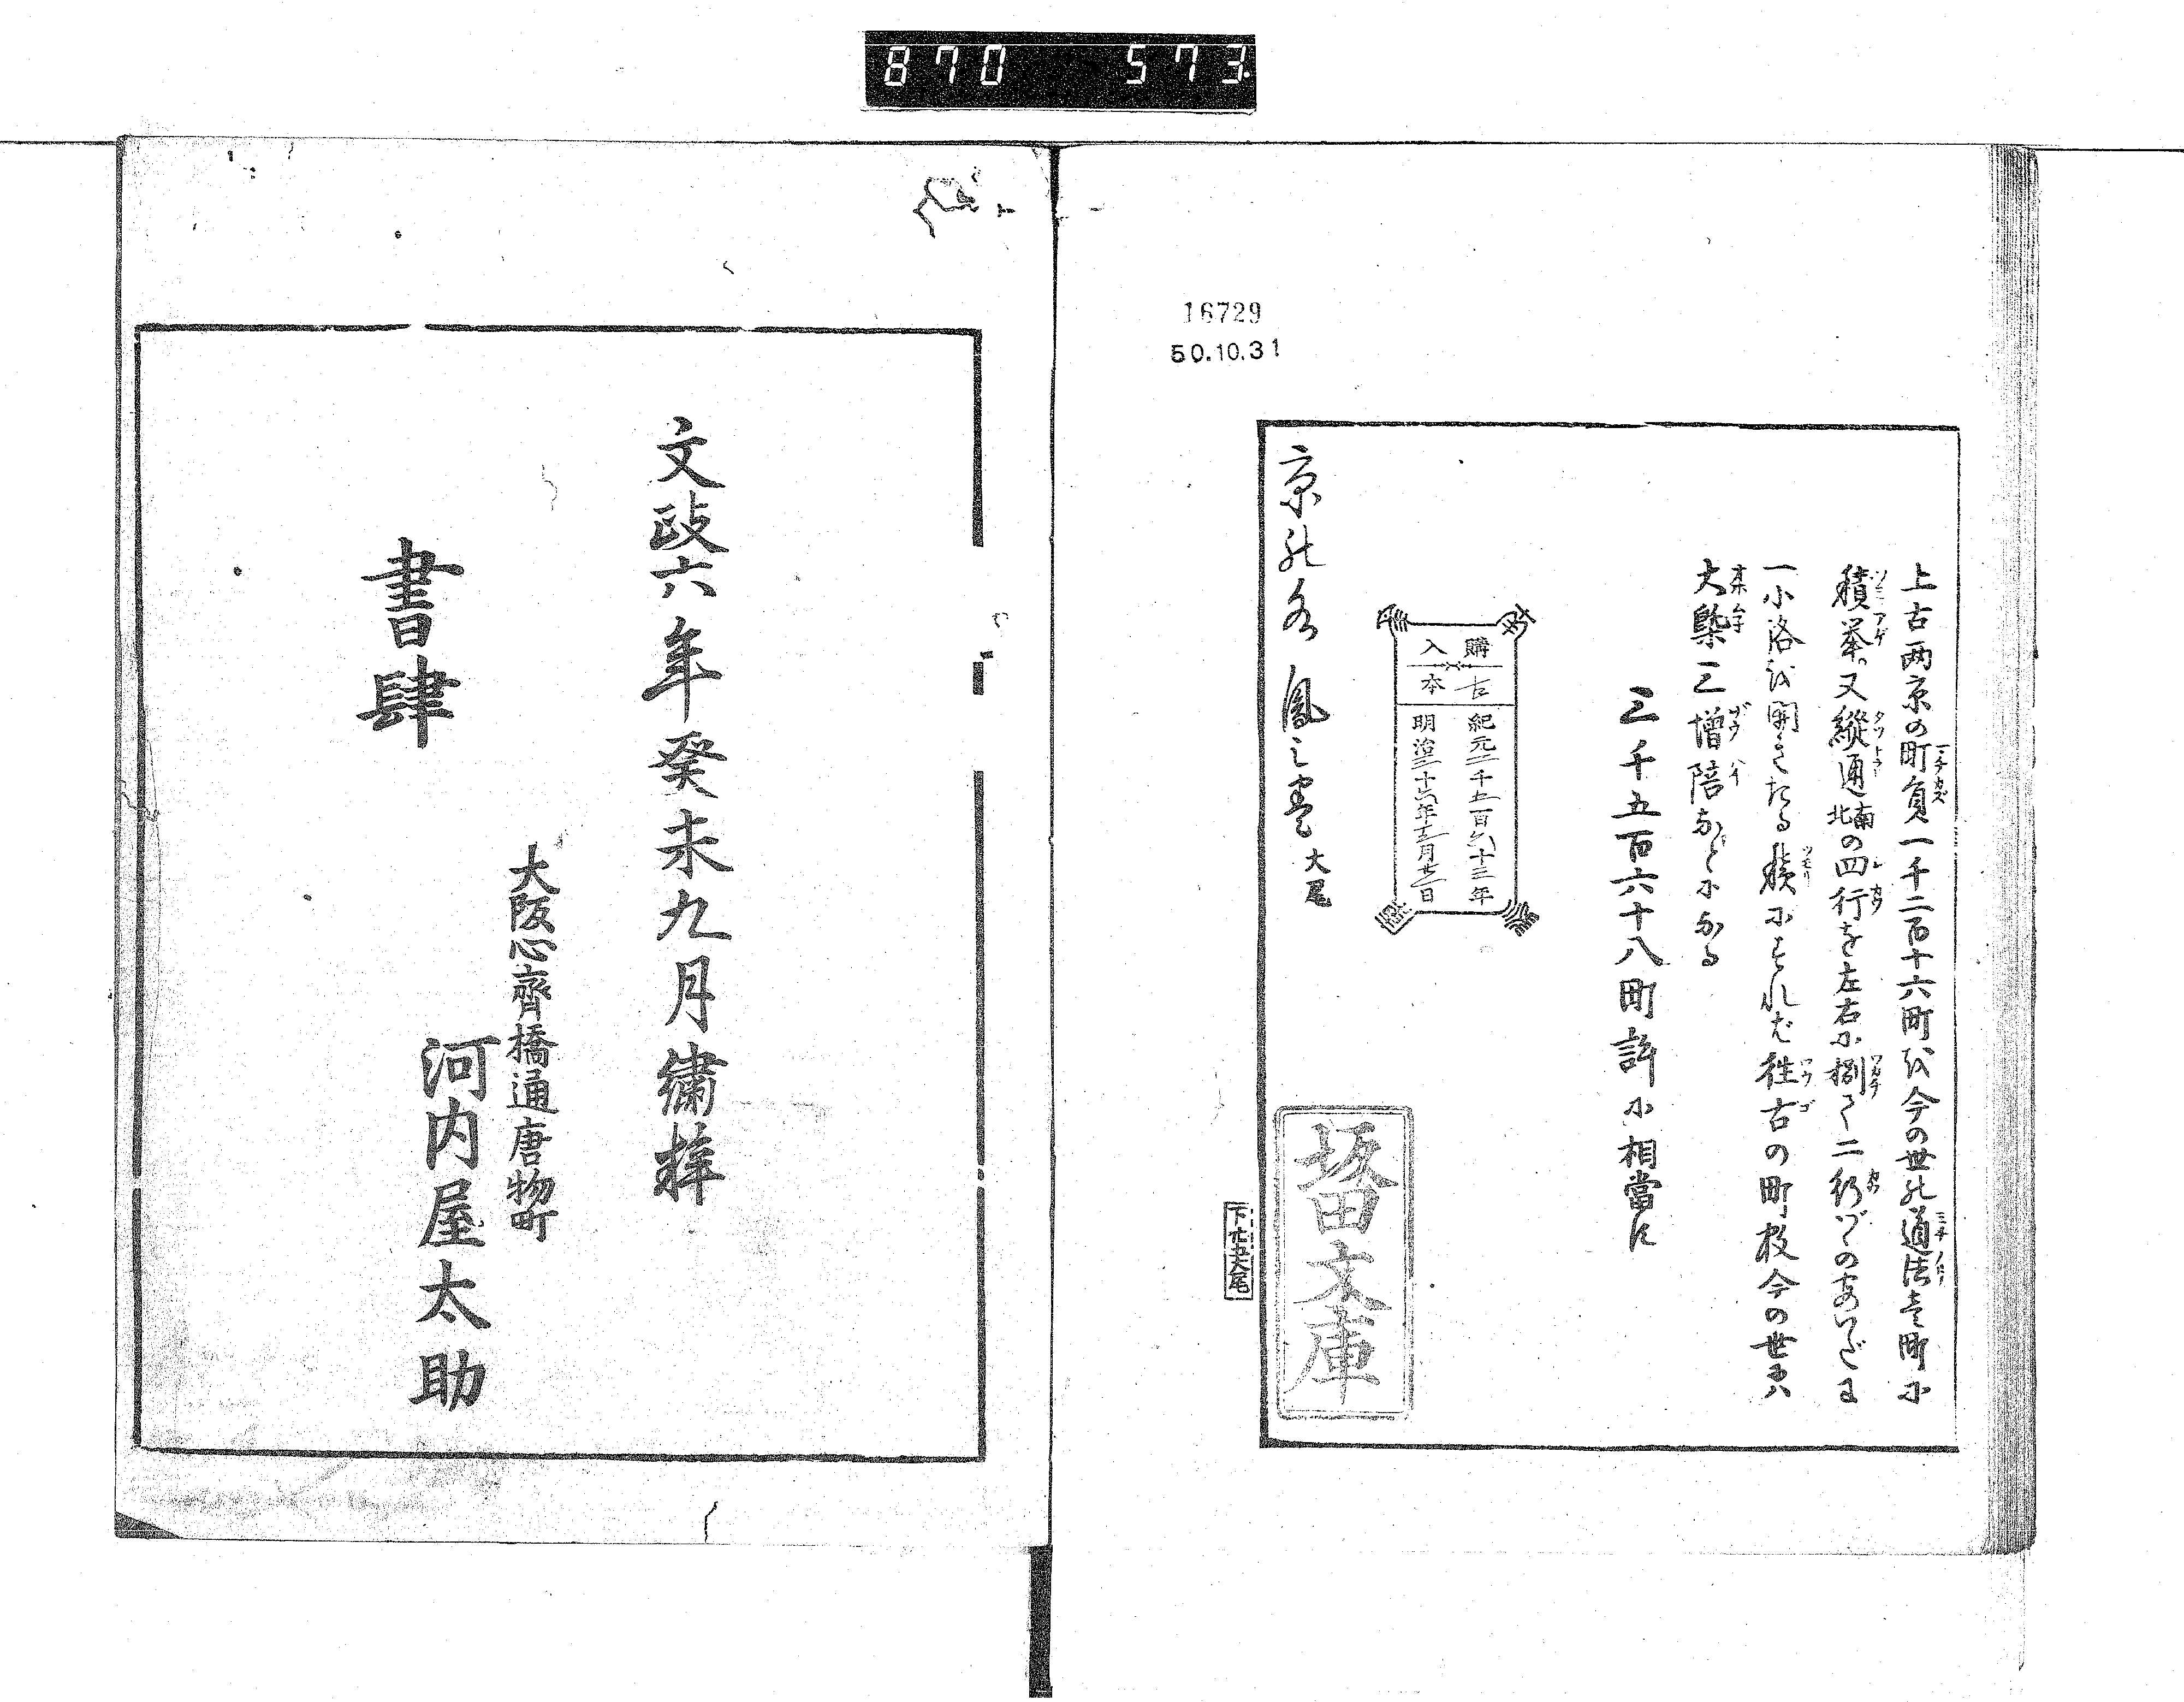 870 573
16729
50.10.31
上古両京の町員一千二百十六町を今の世の道法壱町に
積挙又縦通南北の四行を左右に捌て二行づゝのあいだに
一小洛を開きたる積にすれば往古の町数今の世
大槩三増陪などになる
三千五百六十八町許に相當れ
購入
古本
紀元二千五百五十三年
明治二十六年十二月廿一日
京の水 鳳之巻 大尾
文政六年癸未九月繍梓
大阪心齊橋通唐物町
書肆 河内屋太助